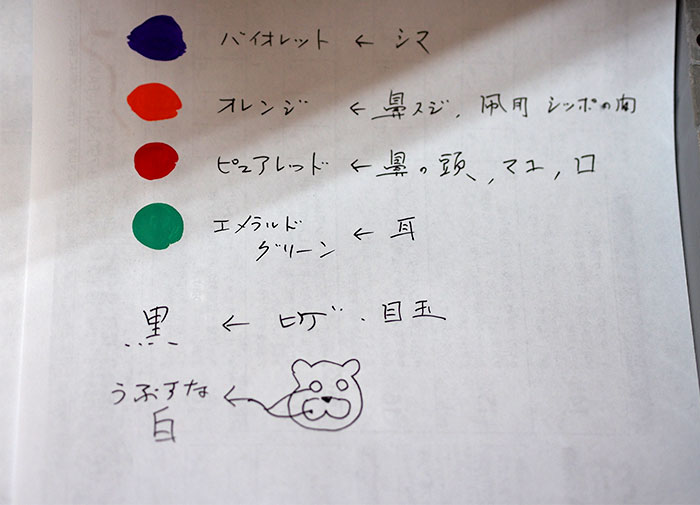 バイオレット ← シマ
オレンジ ← 鼻スジ、 シッポの
ピュアレッド ← 鼻の頭、マユ、口
エメラルド
グリーン ← 耳
黒 ← ヒゲ、目玉
うぶすな ←
白